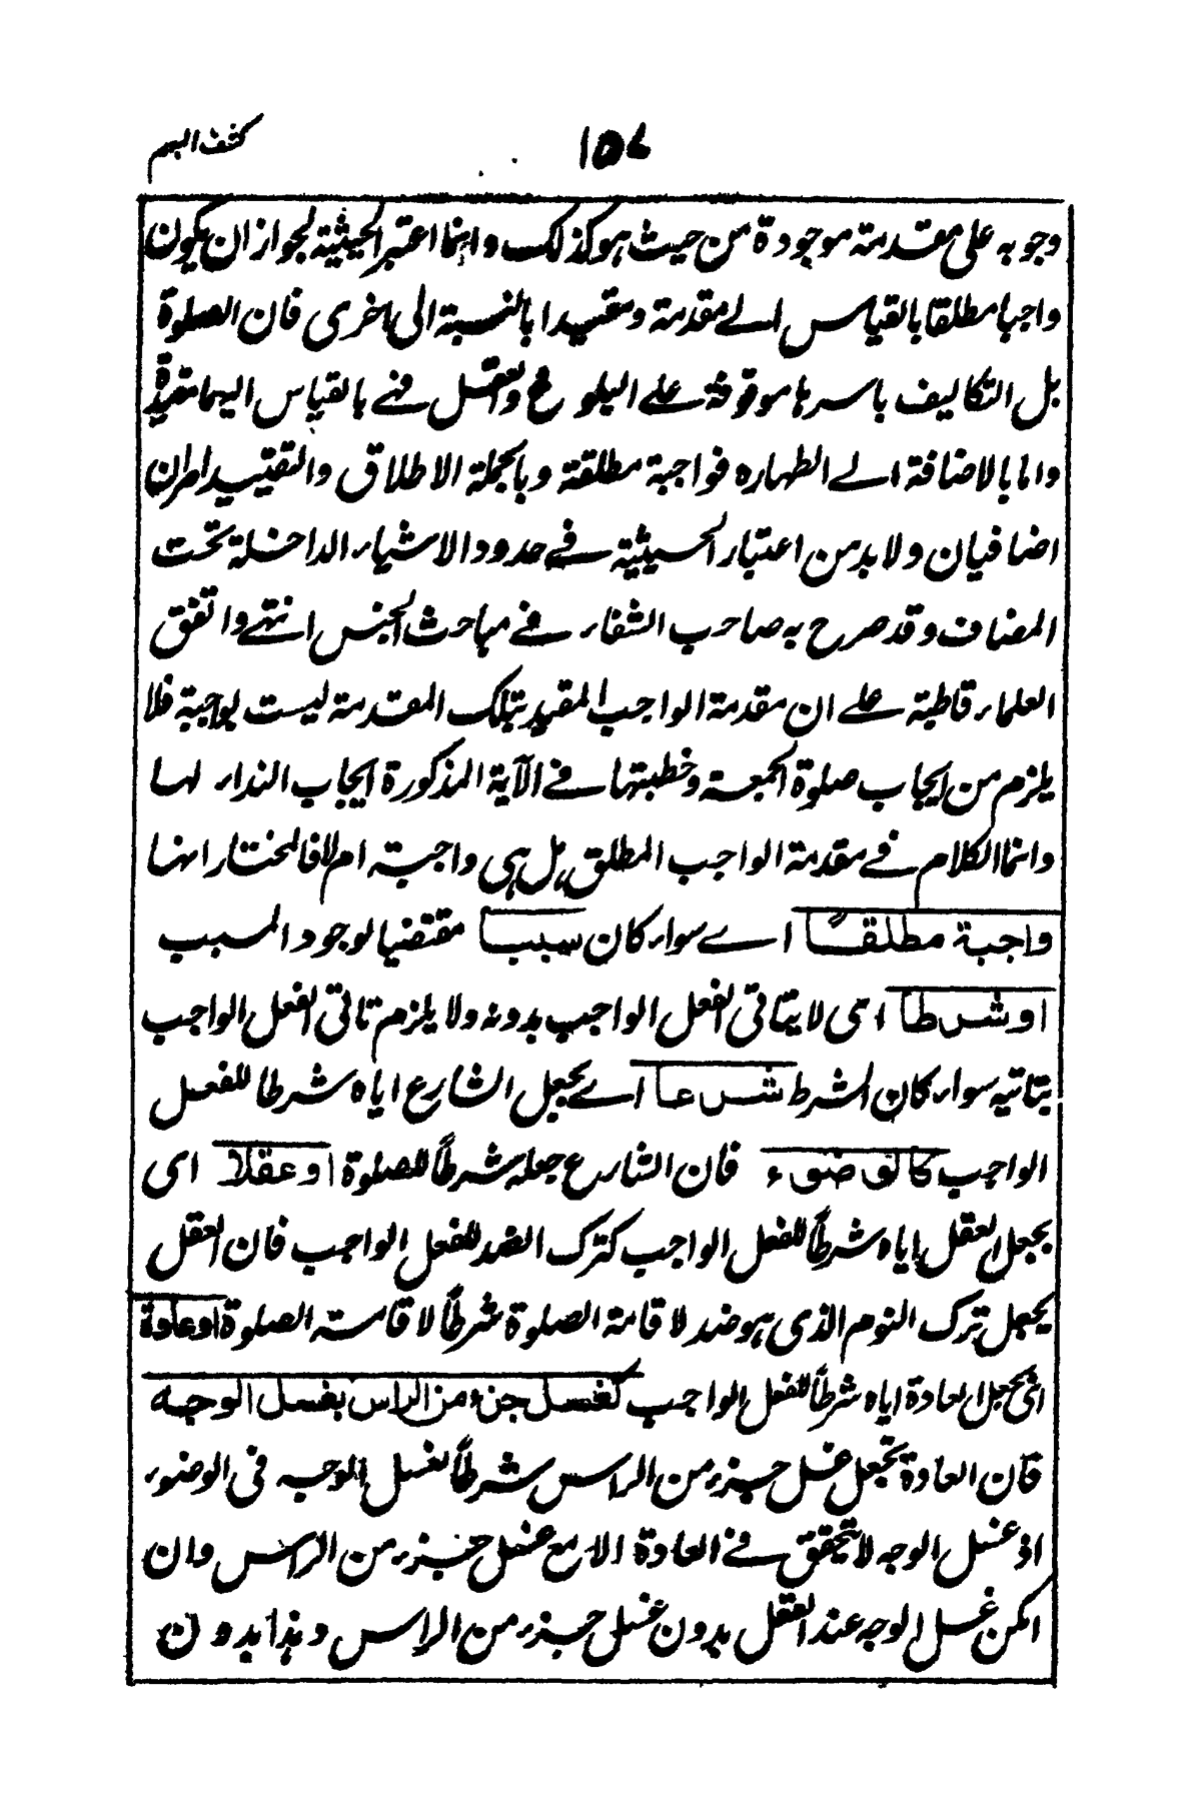 كشف المبهم
١٥٧
وجوبه على مقدمة موجودة من حيث هو كذلك وانما اعتبر الحيثية لجواز ان يكون
واجبا مطلقا بالقياس الے مقدمة ومقيدا بالنسبة الى اخرى فان الصلوة
بل التكاليف باسرها موقوفة علے البلوغ والعقل فهے بالقياس اليهما مقيدة
واما بالاضافة الے الطهاره فواجبة مطلقة وبالجملة الاطلاق والتقييد امران
اضافيان ولا بد من اعتبار الحيثية فے حدود الاشياء الداخلة تحت
المضاف وقد صرح به صاحب الشفاء فے مباحث الجنس انتهے واتفق
العلماء قاطبة علے ان مقدمة الواجب المقيد بتلك المقدمة ليست بواجبة فلا
يلزم من ايجاب صلوة الجمعة وخطبتها فے الآية المذكورة ايجاب النداء لها
وانما الكلام فے مقدمة الواجب المطلق بل هى واجبة ام لا فالمختار انها
واجبة مطلقًا اے سواء كان سببا مقتضيا لوجود المسبب
او شرطا اى لا يتاتى الفعل الواجب بدونه ولا يلزم تاتى الفعل الواجب
بتاتيه سواء كان الشرط شرعا اے بجعل الشارع اياه شرطا للفعل
الواجب كالوضوء فان الشارع جعله شرطاً للصلوة او عقلا اى
بجعل العقل اياه شرطاً للفعل الواجب كترك الضد للفعل الواجب فان العقل
يجعل ترك النوم الذى هو ضد لاقامة الصلوة شرطاً لاقامة الصلوة او عادة
اى بجعل العادة اياه شرطاً للفعل الواجب كغسل جزء من الراس بغسل الوجه
فان العادة تجعل غسل جزء من الراس شرطاً لغسل الوجه فى الوضوء
اذ غسل الوجه لا يتحقق فے العادة الا مع غسل جزء من الراس وان
امكن غسل الوجه عند العقل بدون غسل جزء من الراس وهذا بدون